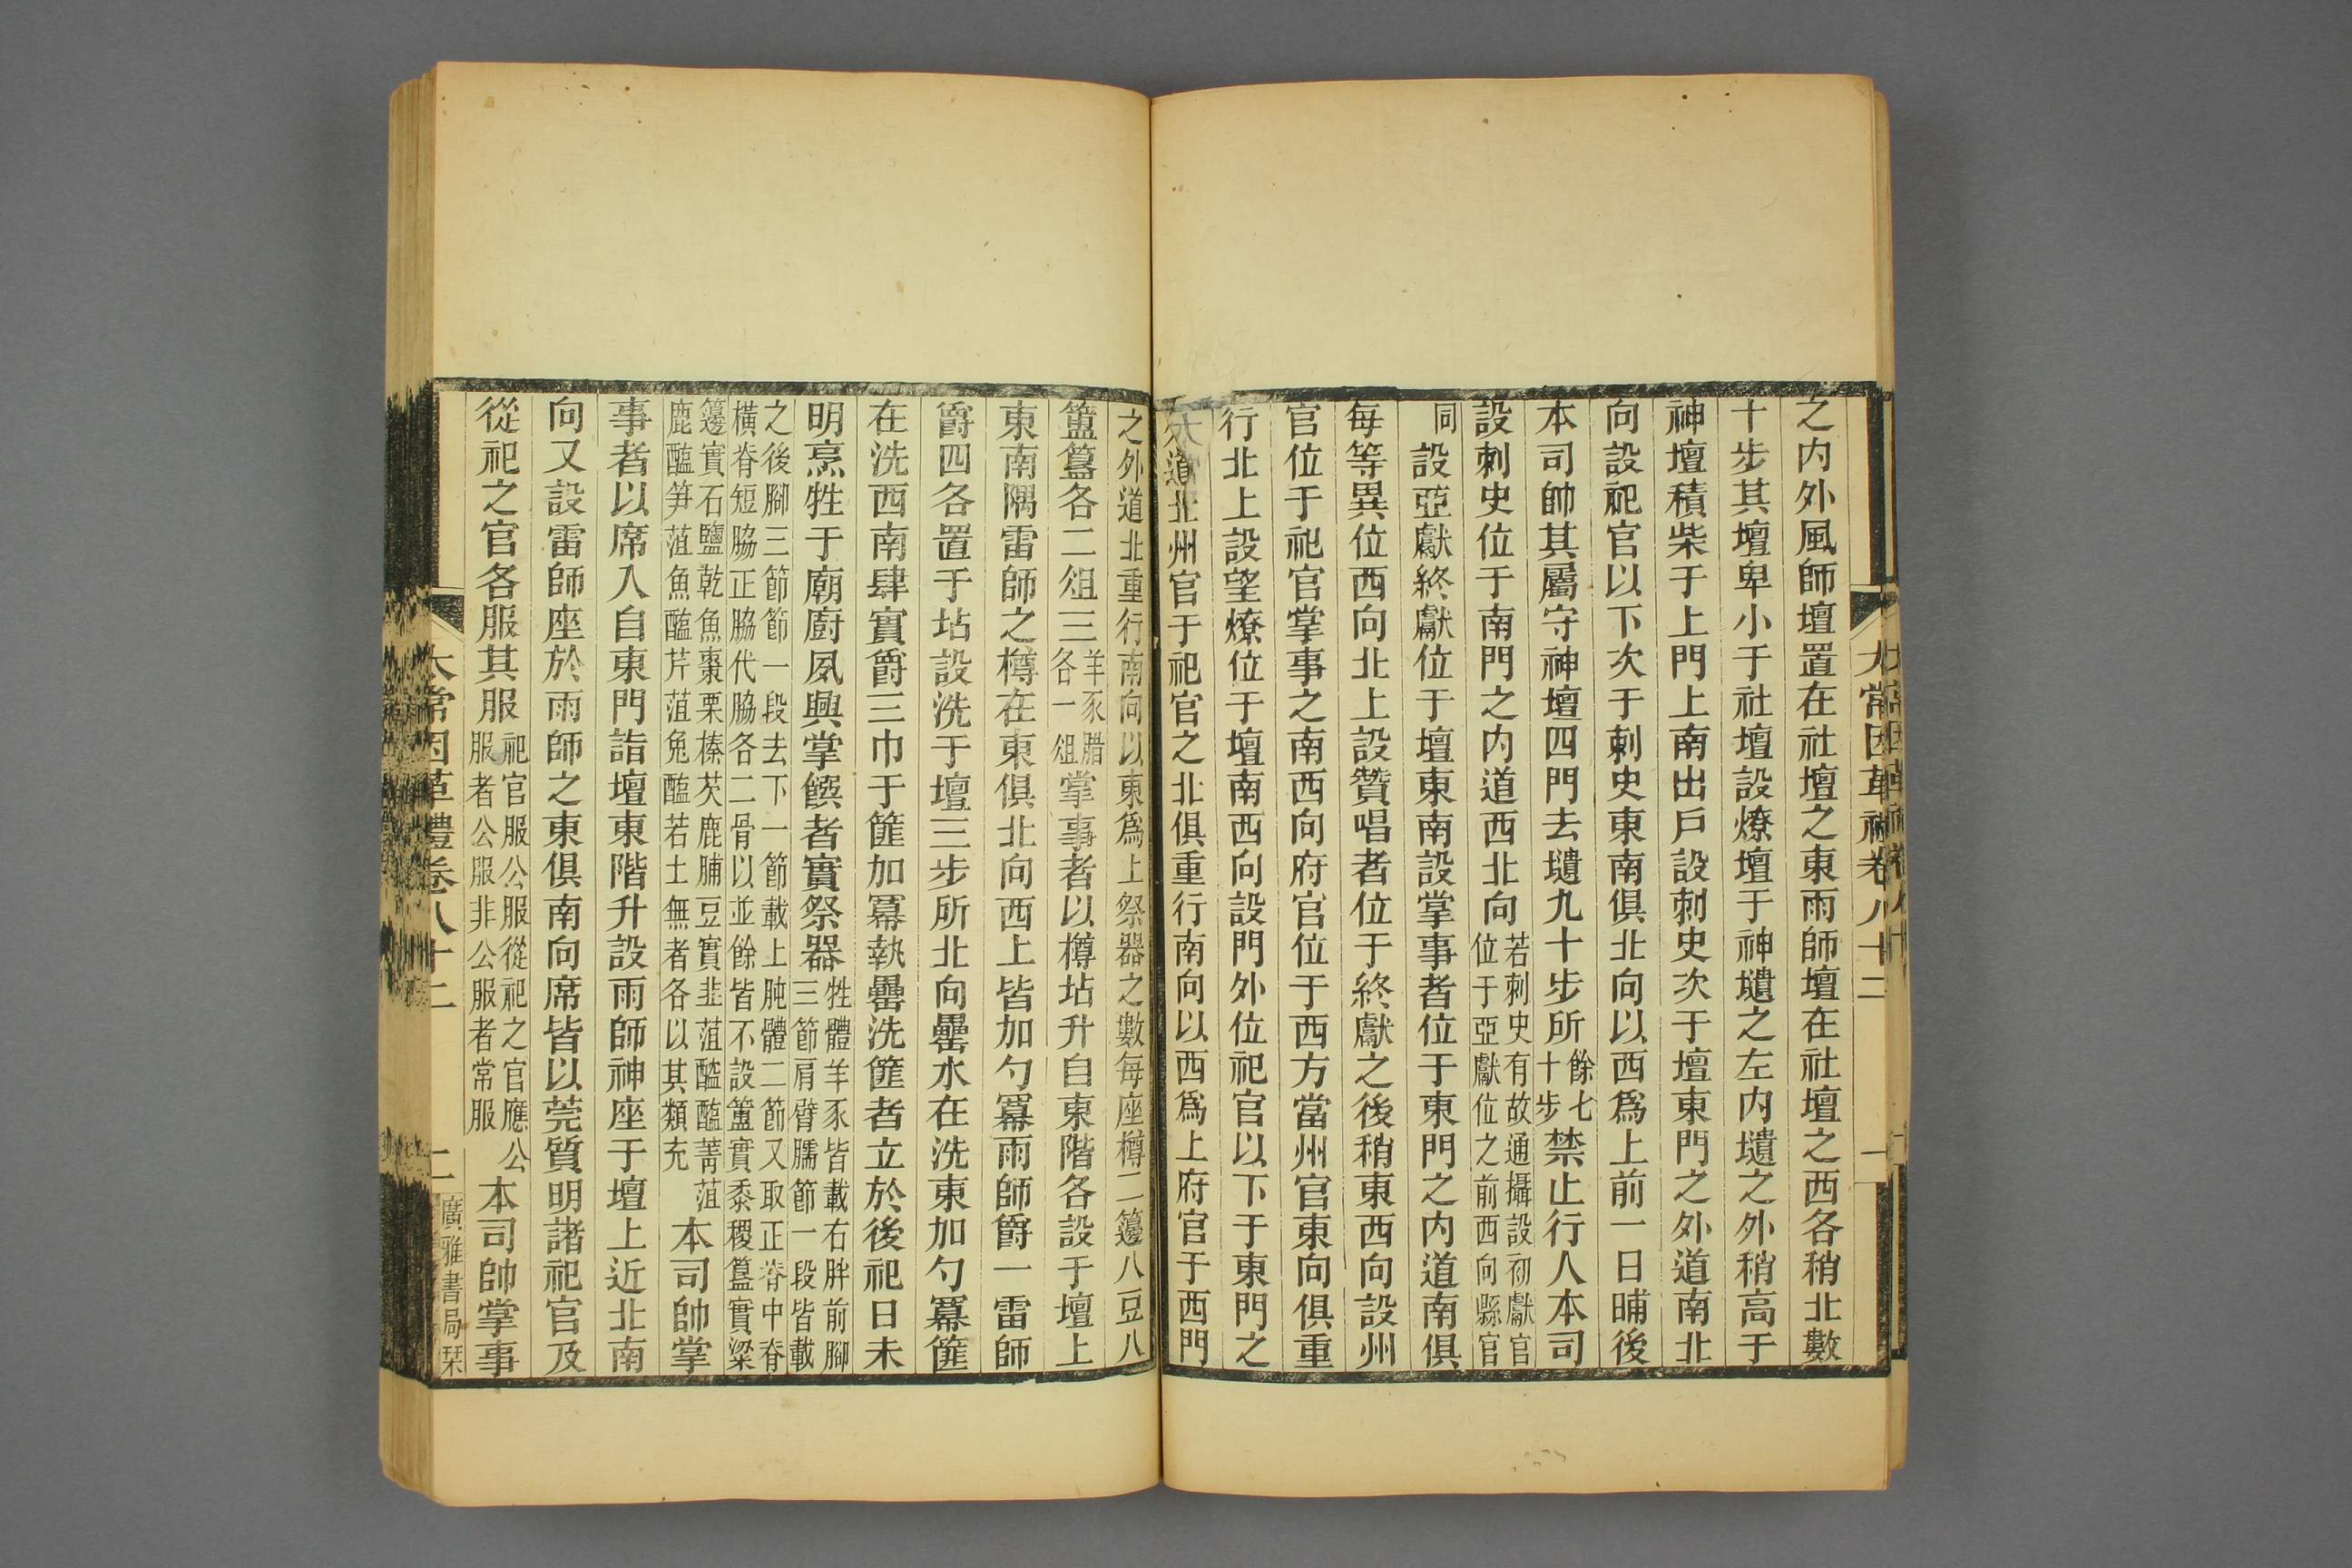 太常因革禮卷八十二
一
之內外風師壇置在社壇之東雨師壇在社壇之西各稍北數
十步其壇卑小于社壇設燎壇于神壝之左內壝之外稍高于
神壇積柴于上門上南出戶設刺史次于壇東門之外道南北
向設祀官以下次于刺史東南俱北向以西爲上前一日晡後
本司帥其屬守神壇四門去壝九十步所餘七十步禁止行人本司
設刺史位于南門之內道西北向若刺史有故通攝設初獻官位于亞獻位之前西向縣官
同設亞獻終獻位于壇東南設掌事者位于東門之內道南俱
每等異位西向北上設贊唱者位于終獻之後稍東西向設州
官位于祀官掌事之南西向府官位于西方當州官東向俱重
行北上設望燎位于壇南西向設門外位祀官以下于東門之
道北州官于祀官之北俱重行南向以西爲上府官于西門
之外道北重行南向以東爲上祭器之數每座樽二籩八豆八
簠簋各二俎三羊豕腊各一俎掌事者以樽坫升自東階各設于壇上
東南隅雷師之樽在東俱北向西上皆加勺冪雨師爵一雷師
爵四各置于坫設洗于壇三步所北向罍水在洗東加勺冪篚
在洗西南肆實爵三巾于篚加冪執罍洗篚者立於後祀日未
明烹牲于廟廚夙興掌饌者實祭器牲體羊豕皆載右胖前腳三節肩臂臑節一段皆載
之後腳三節節一段去下一節載上肫體二節又取正脊中脊橫脊短脇正脇代脇各二骨以並餘皆不設簠實黍稷簋實粱
籩實石鹽乾魚棗栗榛芡鹿脯豆實韭菹醓醢菁菹鹿醢笋菹魚醢芹菹兔醢若土無者各以其類充本司帥掌
事者以席入自東門詣壇東階升設雨師神座于壇上近北南
向又設雷師座於雨師之東俱南向席皆以莞質明諸祀官及
從祀之官各服其服祀官服公服從祀之官應公服者公服非公服者常服本司帥掌事
太常因革禮卷八十二
二
廣雅書局栞